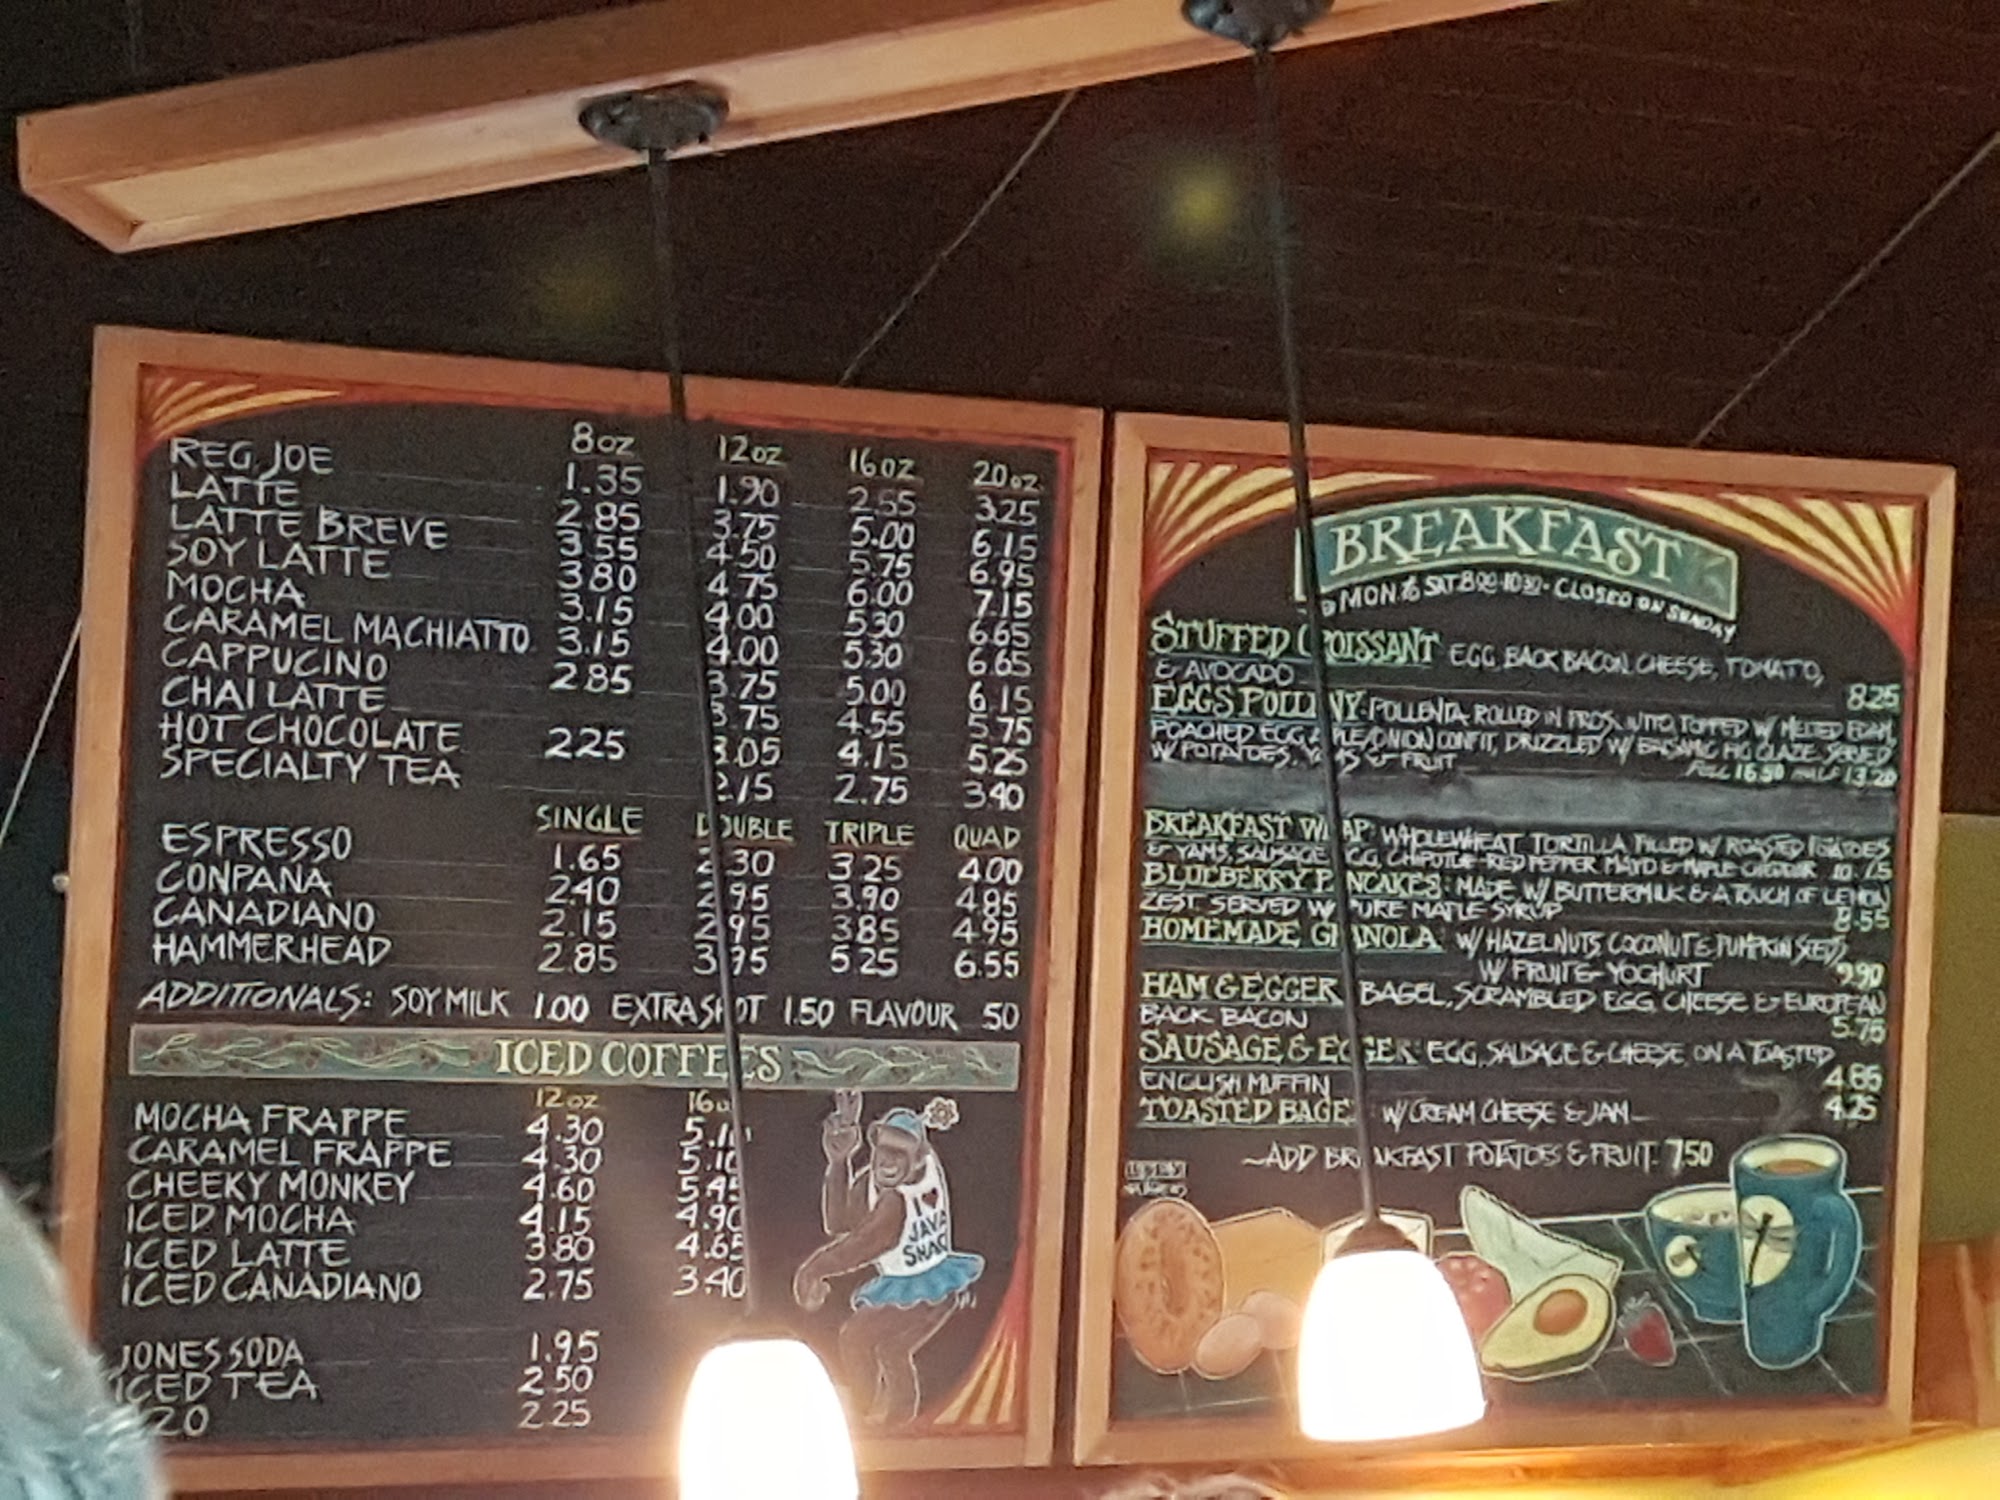 8oz 12oz 16oz 20oz
REG. JOE 1.35 1.90 2.55 3.25
LATTE 2.85 3.75 5.00 6.15
LATTE BREVE 3.55 4.50 5.75 6.95
SOY LATTE 3.80 4.75 6.00 7.15
MOCHA 3.15 4.00 5.30 6.65
CARAMEL MACHIATTO 3.15 4.00 5.30 6.65
CAPPUCINO 2.85 3.75 5.00 6.15
CHAI LATTE 3.75 4.55 5.75
HOT CHOCOLATE 2.25 3.05 4.15 5.25
SPECIALTY TEA 2.15 2.75 3.40
SINGLE DOUBLE TRIPLE QUAD
ESPRESSO 1.65 2.30 3.25 4.00
CONPANA 2.40 2.95 3.90 4.85
CANADIANO 2.15 2.95 3.85 4.95
HAMMERHEAD 2.85 3.95 5.25 6.55
ADDITIONALS: SOY MILK 1.00 EXTRA SHOT 1.50 FLAVOUR .50
ICED COFFEES
12oz 16oz
MOCHA FRAPPE 4.30 5.10
CARAMEL FRAPPE 4.30 5.10
CHEEKY MONKEY 4.60 5.45
ICED MOCHA 4.15 4.90
ICED LATTE 3.80 4.65
ICED CANADIANO 2.75 3.40
JONES SODA 1.95
ICED TEA 2.50
2.25
I ♥
JAVA
SHACK
BREAKFAST
MON to SAT 8:00-10:30 - CLOSED ON SUNDAY
STUFFED CROISSANT EGG, BACK BACON, CHEESE, TOMATO,
& AVOCADO 8.25
EGGS POLLENY: POLLENTA ROLLED IN TOPPED W/ MELTED
POACHED EGG, APPLE/ONION CONFIT, DRIZZLED W/ BALSAMIC FIG GLAZE. SERVED
W/ POTATOES, YAMS & FRUIT FULL 16.50 HALF 13.20
BREAKFAST WRAP: WHOLEWHEAT TORTILLA FILLED W/ ROASTED POTATOES
& YAMS, SAUSAGE, EGG, CHIPOTLE-RED PEPPER MAYO & MAPLE CHEDDAR 10.75
BLUEBERRY PANCAKES: MADE W/ BUTTERMILK & A TOUCH OF LEMON
ZEST SERVED W/ PURE MAPLE SYRUP 8.55
HOMEMADE GRANOLA: W/ HAZELNUTS, COCONUT & PUMPKIN SEEDS,
W/ FRUIT & YOGHURT 9.90
HAM & EGGER BAGEL, SCRAMBLED EGG, CHEESE & EUROPEAN
BACK BACON 5.75
SAUSAGE & EGGER: EGG, SAUSAGE & CHEESE, ON A TOASTED
ENGLISH MUFFIN 4.85
TOASTED BAGEL W/ CREAM CHEESE & JAM 4.25
~ADD BREAKFAST POTATOES & FRUIT. 7.50